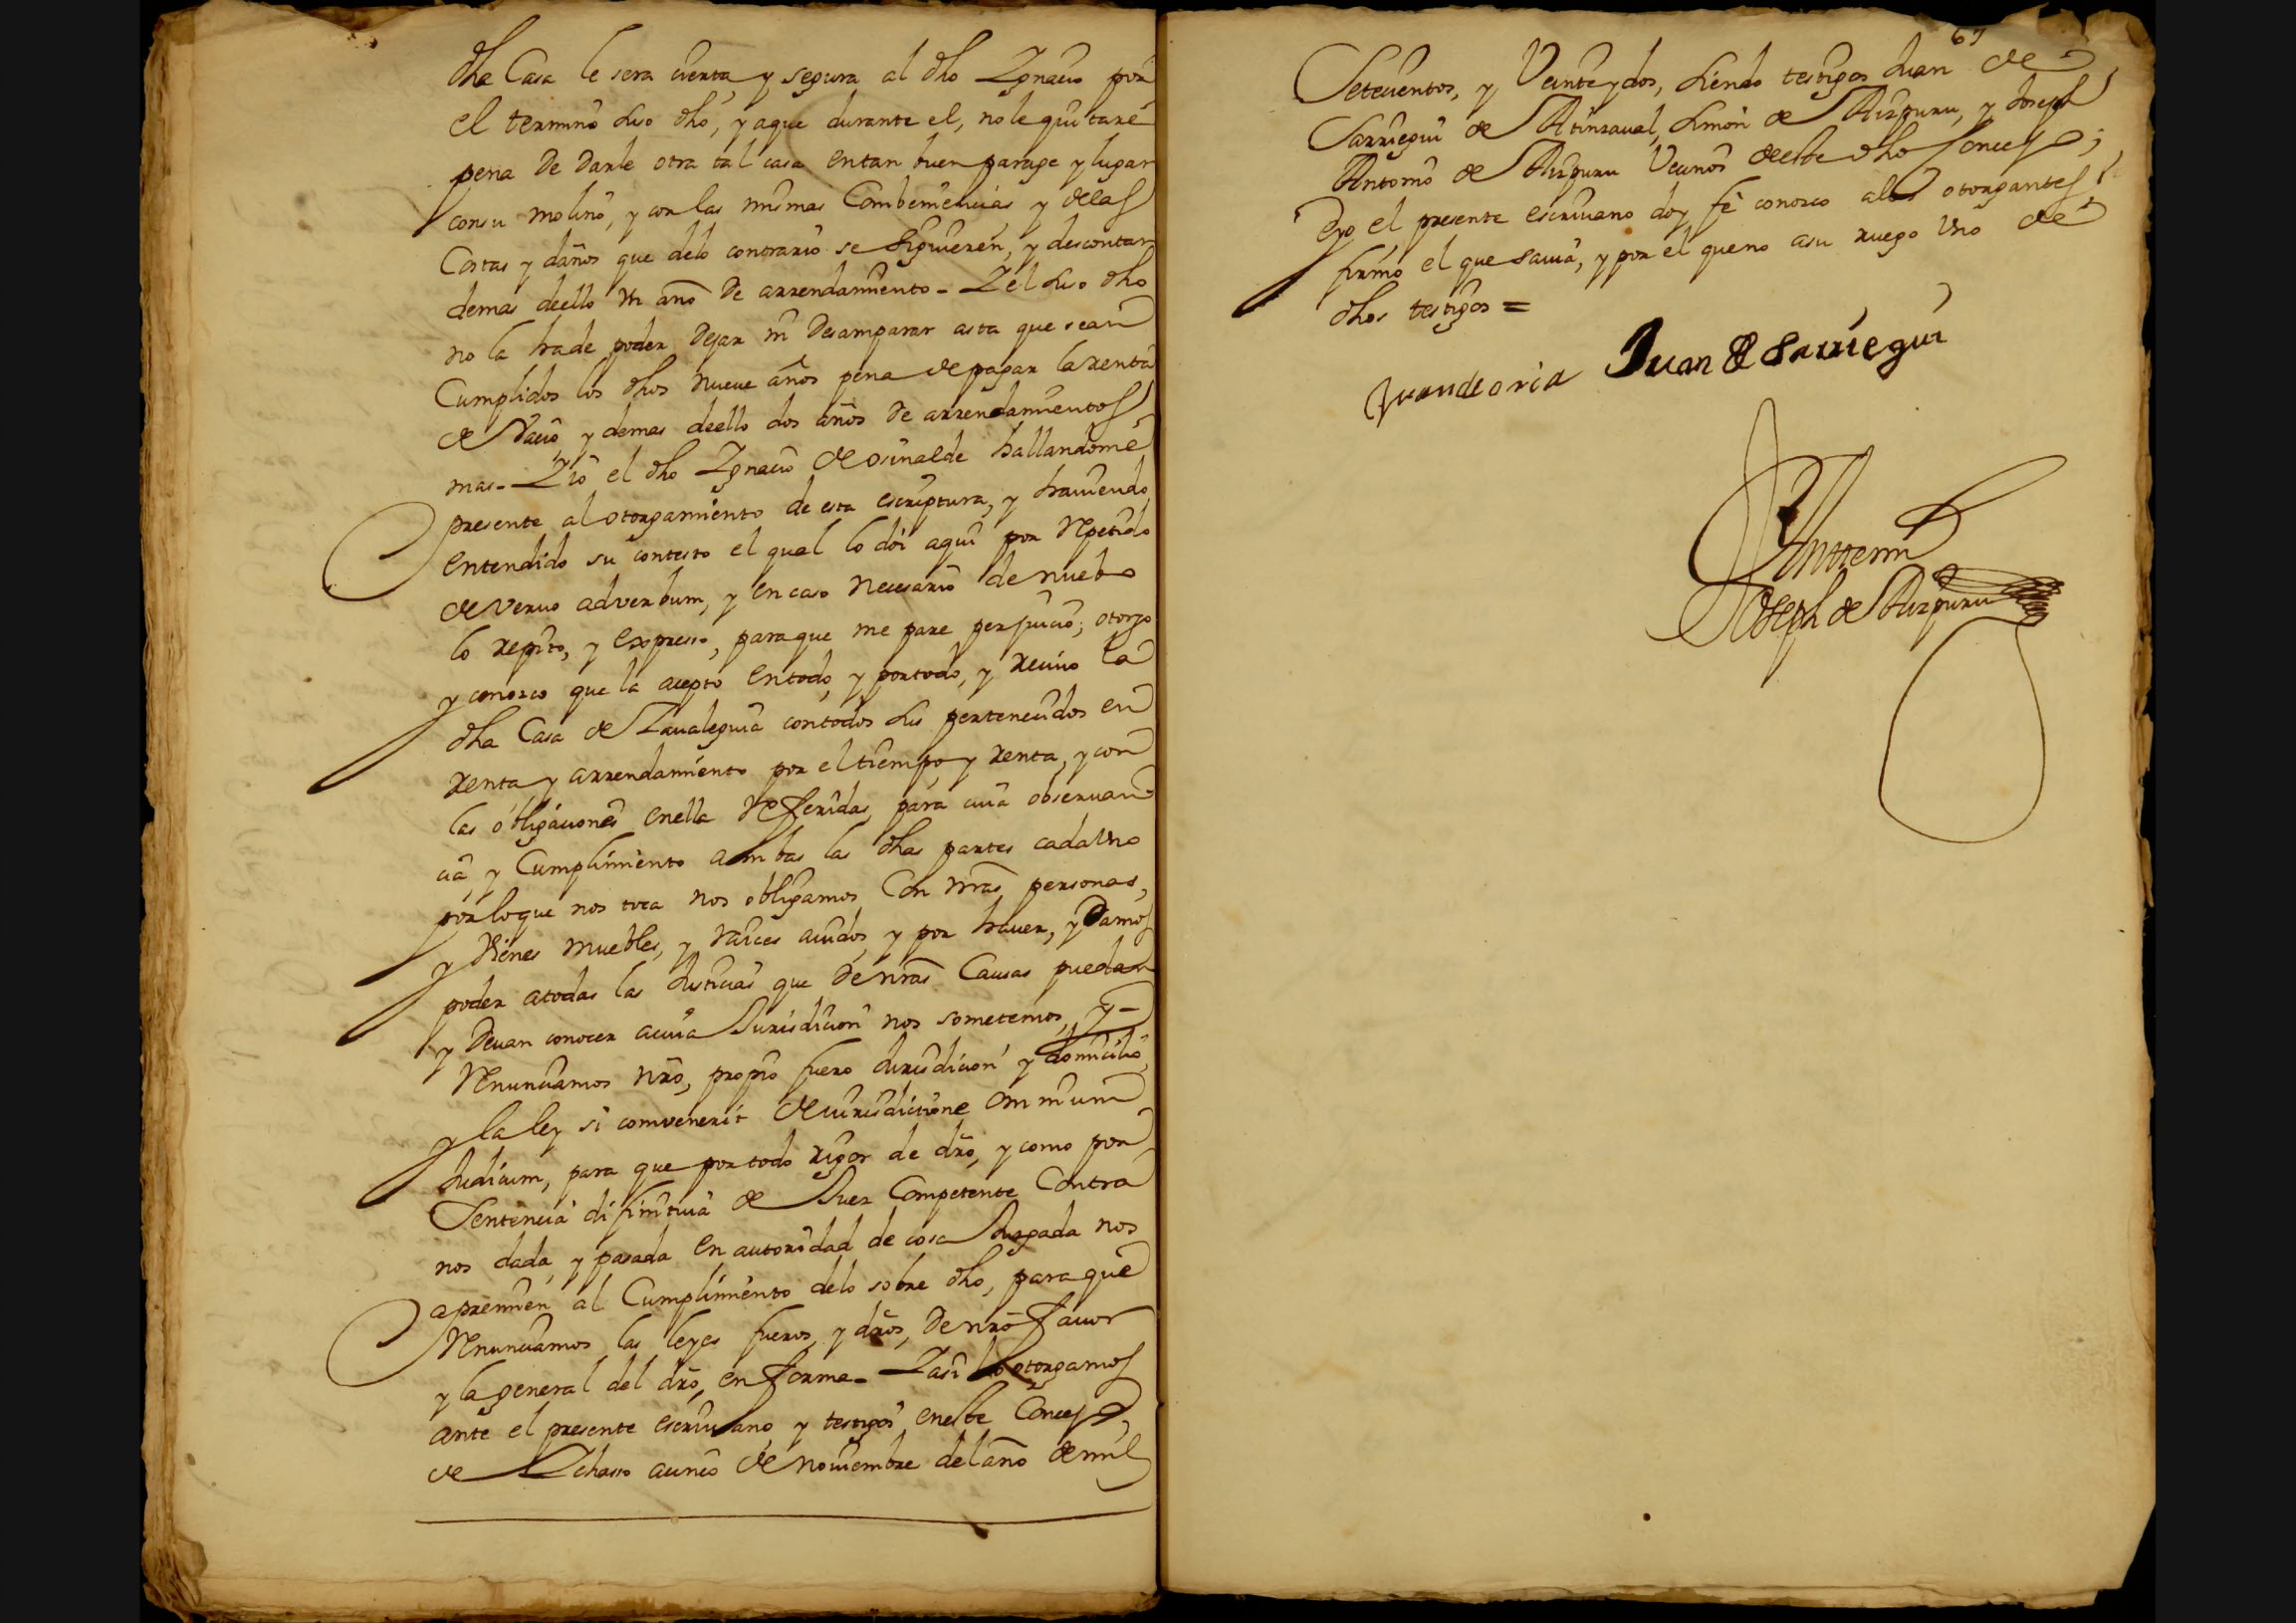 dha Casa le sera cierta, y segura al dho Ygnacio por
el termino suso dho, y a que durante el, no le quitare
pena de darle otra tal casa en tan buen parage y lugar
con su molino, y con las mismas Combeniencias y delas
Costas y daños que delo contrario se siguieren, y descontar
demas deello vn año de arrendamiento - Y el suso dho
no la hade poder dejar ni desamparar asta que sean
Cumplidos los dhos nueve años pena de pagar la renta
de vacio, y demas deello dos años de arrendamientos
mas - Y io el dho Ygnacio de osinalde hallandome
presente al otorgamiento de esta escriptura, y haviendo
entendido su contesto el qual lo doi aqui por repetido
de vervo adverbum, y en caso necesario de nuebo
lo repito, y expreso, para que me pare perjuicio; otorgo
y conosco que la acepto en todo, y por todo, y recivo la
dha Casa de Zavaleguia con todos sus pertenecidos en
renta y arrendamiento por el tiempo y renta, y con
las obligaciones enella referidas, para cuia observan
cia, y Cumplimiento ambas las dhas partes cada vno
por loque nos toca nos obligamos Con nras personas,
y vienes muebles, y raices avidos, y por haver, y damos
poder atodas las Justicias que de nras Causas puedan
y devan conocer a cuia Jurisdicion nos sometemos, y -
Renunciamos nro, propio fuero Jurisdicion y domicilio,
y la ley si convenerit de iurisdicione omnium
Judicum, para que por todo rigor de dro, y como por
Sentencia difinitiva de Juez Competente Contra
nos dada, y pasada en autoridad de cosa Juzgada nos
apremien al Cumplimiento delo sobre dho, para que
Renunciamos las leyes fueros, y dros, de nro favor
y la general del dro, en forma - Y asi lo otorgamos
ante el presente escrivano, y testigos en este Concejo,
de Ychaso a cinco de noviembre del año de mil
67
Setecientos, y Veinte y dos, siendo testigos Juan de
Sarriegui de Atinzaval, Simon de Aizpuru, y Joseph
Antonio de Aizpuru Vecinos deeste dho Concejo;
e yo el presente escrivano doy fe conosco alos otorgantes,
firmo el que savia, y por el que no a su ruego vno de
dhos testigos =
Juan de oria Juan de Sarriegui
Ante mi
Joseph de Aizpuru